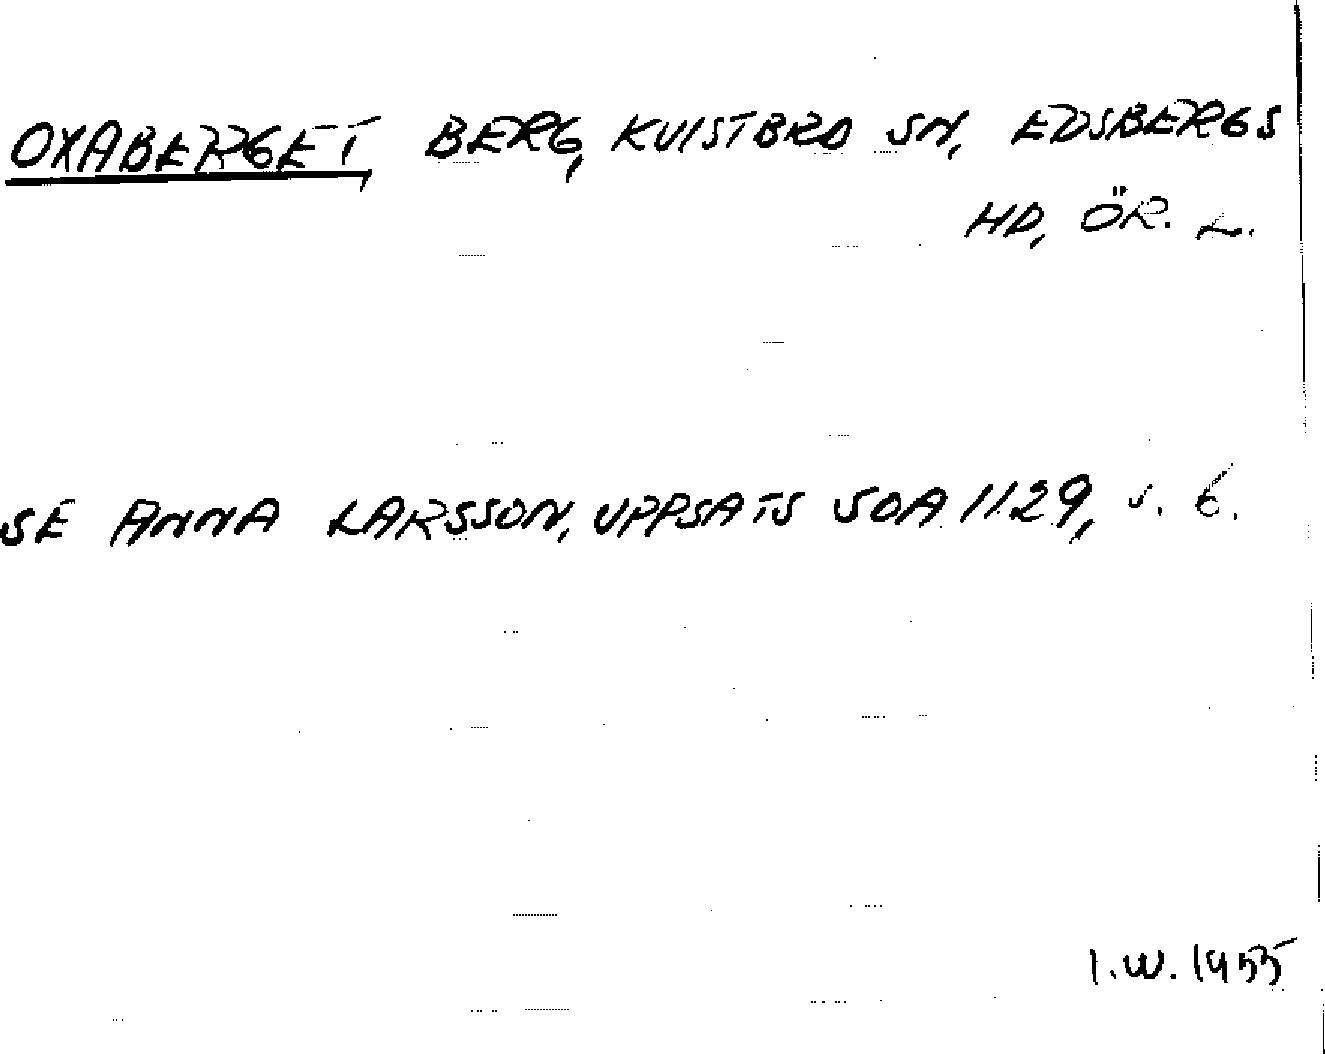 OXABERGET, BERG, KVISTBRO SN, EDSBERGS
HD, ÖR. L.
SE ANNA LARSSON, UPPSATS SOA 1129, s. 6.
I.W. 1955